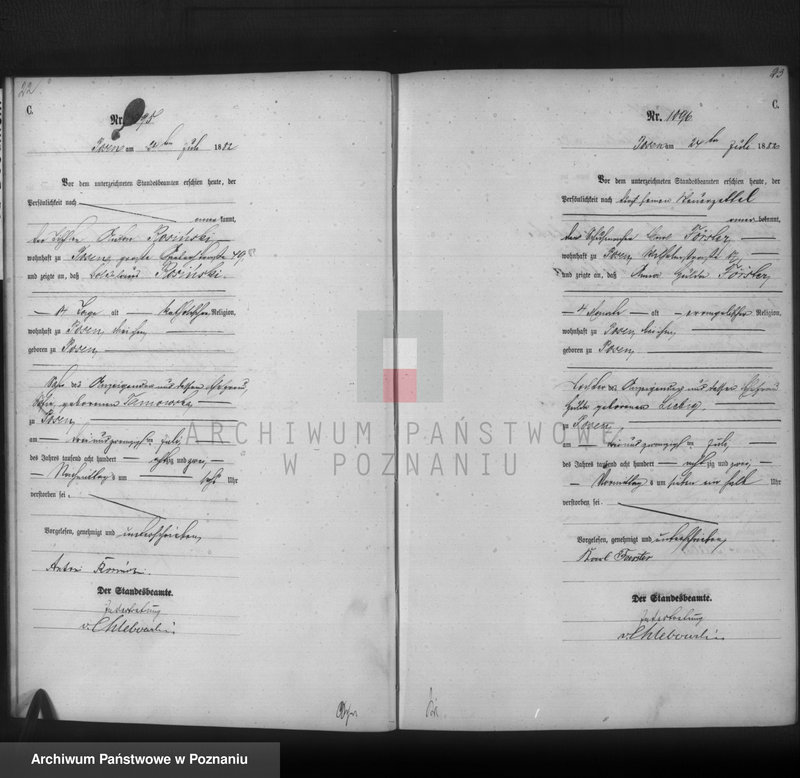 22
C.
Nr. 1095
Posen am 24ten Juli 1882
Vor dem unterzeichneten Standesbeamten erschien heute, der
Persönlichkeit nach
kannt,
der Anton Rosiński
wohnhaft zu Posen, große 49,
und zeigte an, daß Rosiński
Tage alt katholischer Religion,
wohnhaft zu Posen
geboren zu Posen,
Sohn des Anzeigenden und dessen Ehefrau
geborenen Tarnowska
zu Posen,
am dreiundzwanzigten Juli
des Jahres tausend acht hundert achtzig und zwei,
Nachmittags um Uhr
verstorben sei.
Vorgelesen, genehmigt und unterschrieben
Anton
Der Standesbeamte.
In Vertretung
v. Chlebowski
23
C.
Nr. 1096
Posen am 24ten Juli 1882
Vor dem unterzeichneten Standesbeamten erschien heute, der
Persönlichkeit nach durch seinen Steuerzettel
kannt,
der Schuhmacher Carl Förster
wohnhaft zu Posen, Wilhelmstraße
und zeigte an, daß Anna Hulda Förster
4 Monate alt evangelischer Religion,
wohnhaft zu Posen
geboren zu Posen,
Tochter des Anzeigenden und dessen Ehefrau
Hulda geborenen Liebig
zu Posen,
am dreiundzwanzigten Juli,
des Jahres tausend acht hundert achtzig und zwei,
Vormittags um sieben ein halb Uhr
verstorben sei.
Vorgelesen, genehmigt und unterschrieben
Karl Foerster
Der Standesbeamte.
In Vertretung
v. Chlebowski
ARCHIWUM PAŃSTWOWE
W POZNANIU
Archiwum Państwowe w Poznaniu